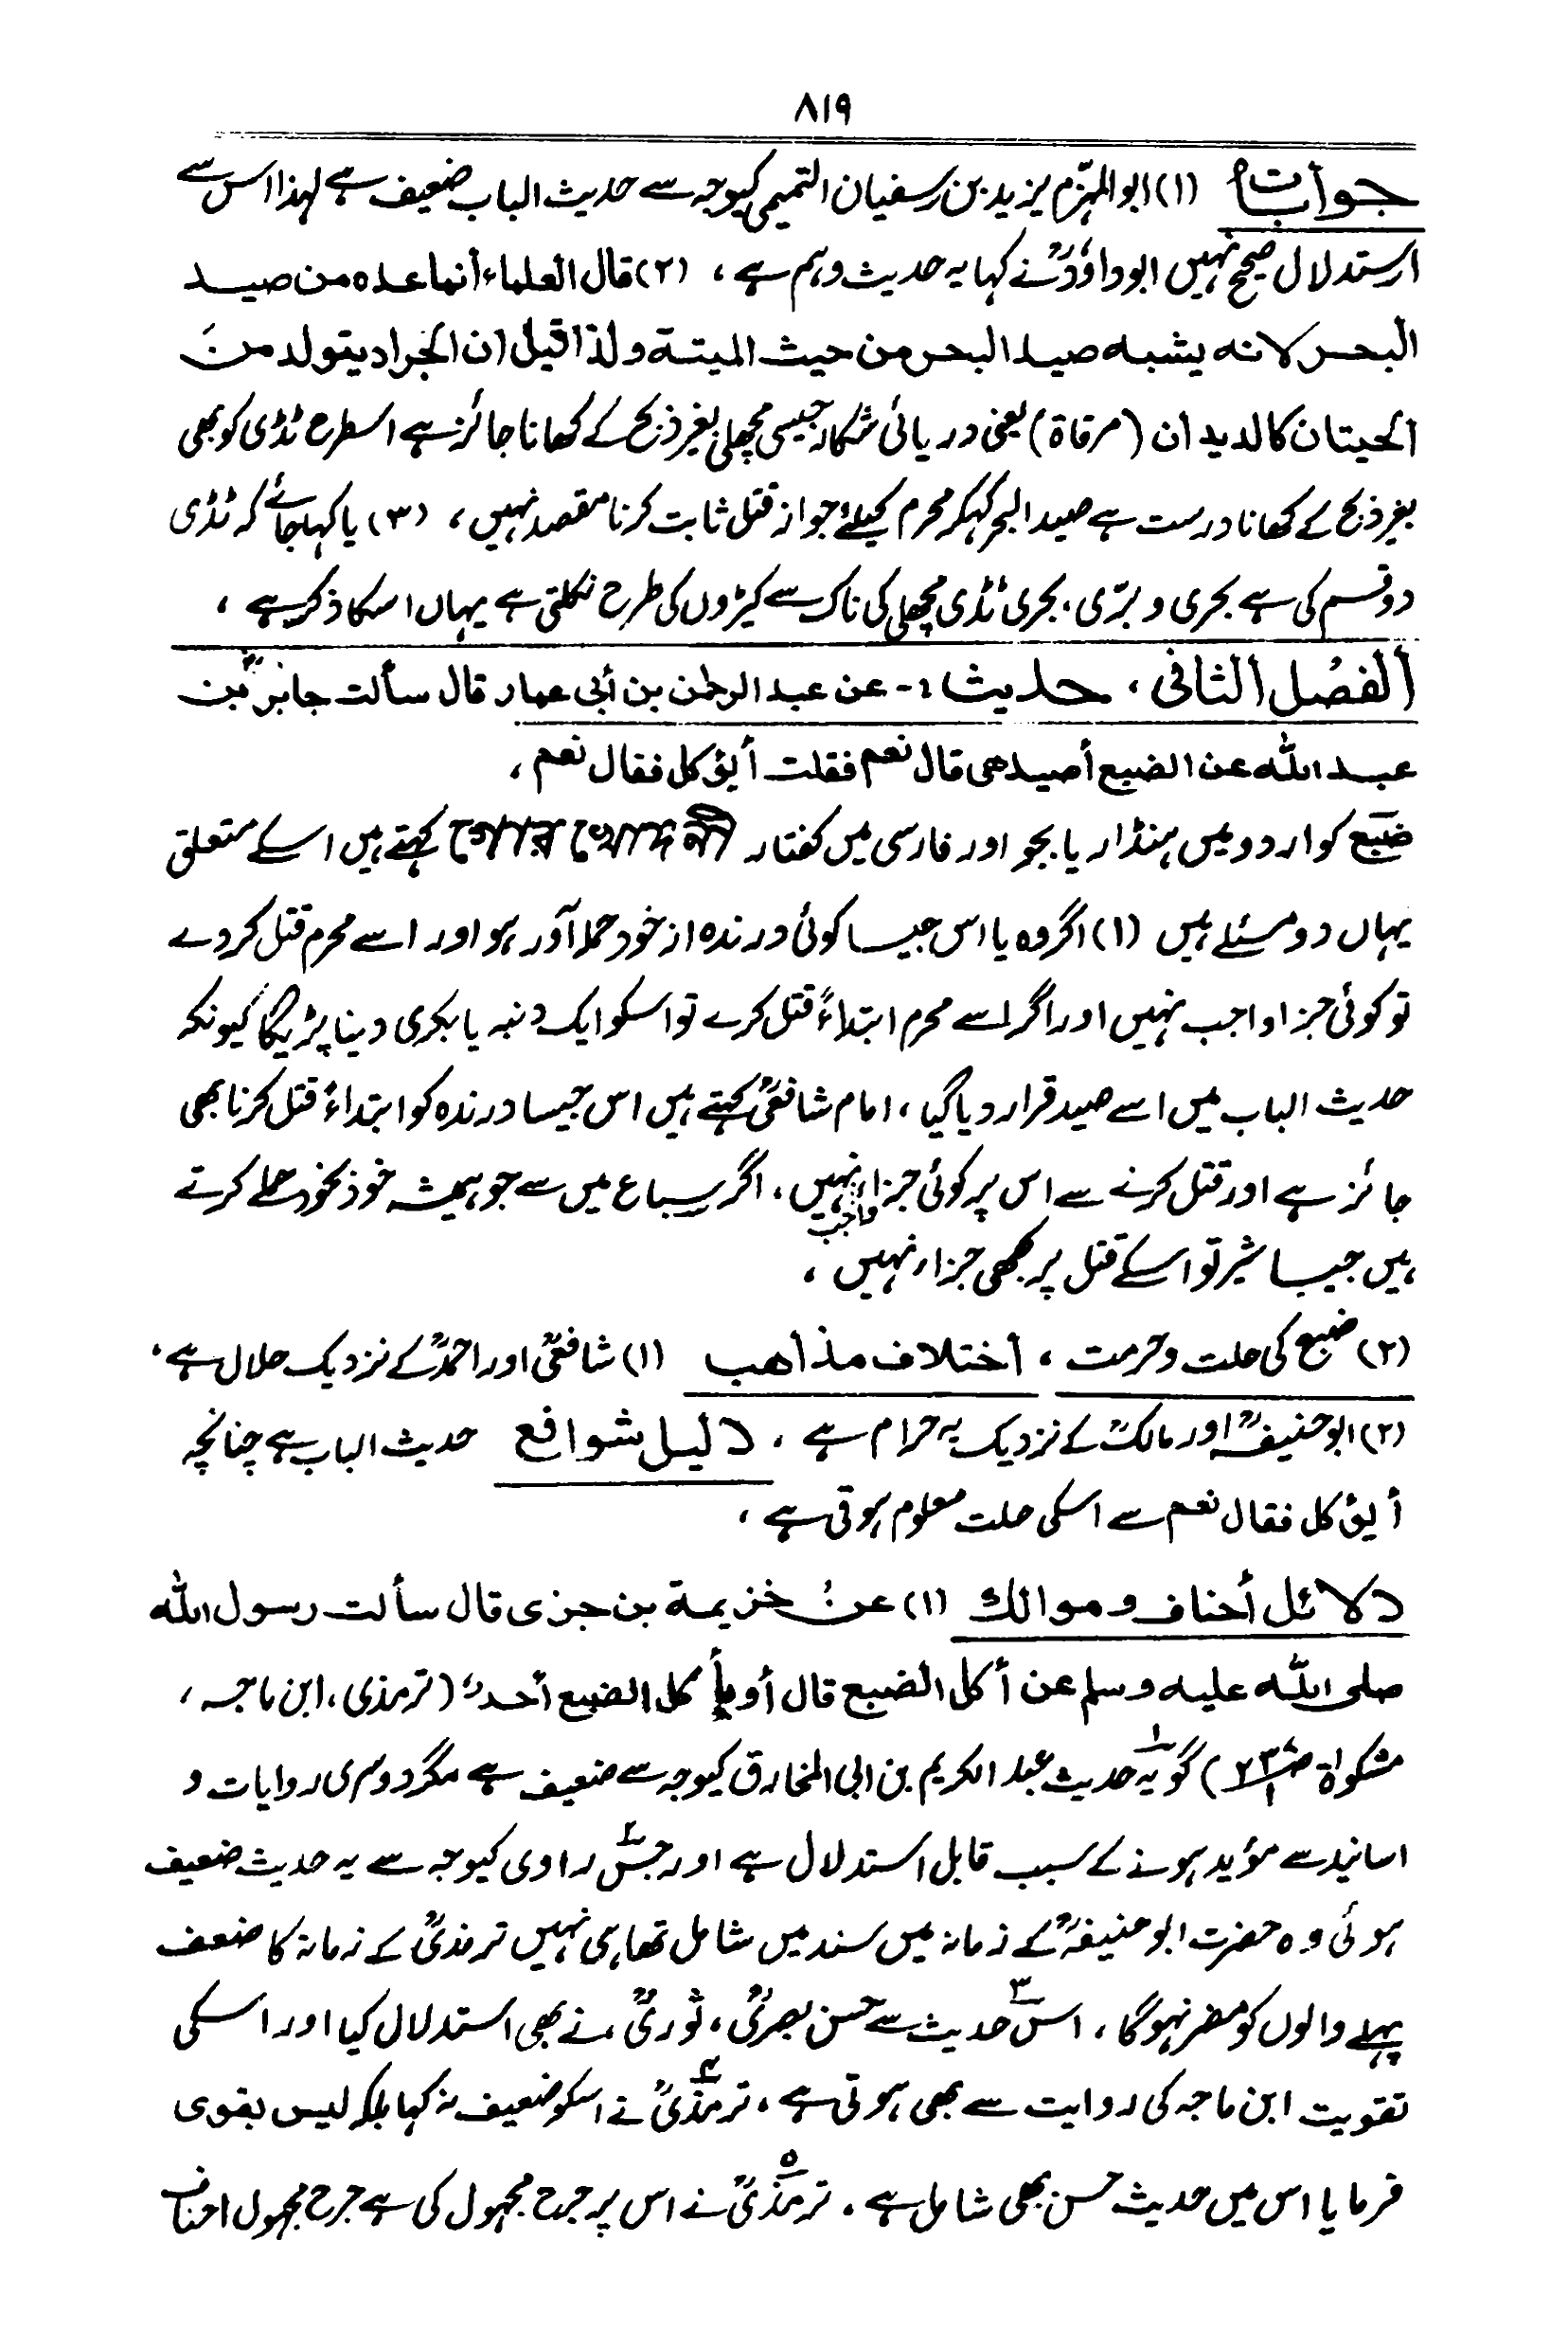 ۸۱۹
جوابات (۱) ابوالمہزّم یزید بن سفیان التمیمی کیوجہ سے حدیث الباب ضعیف ہے لہذا اس سے
استدلال صحیح نہیں ابوداؤدؒ نے کہا یہ حدیث وہم ہے، (۲) قال العلماء أنما عدہ من صید
البحر لانہ یشبہ صید البحر من حیث المیتة ولذا قیل ان الجراد یتولد من
الحیتان کالدیدان (مرقاة) یعنی دریائی شکار جیسی مچھلی بغیر ذبح کے کھانا جائز ہے اسطرح ٹڈی کو بھی
بغیر ذبح کے کھانا درست ہے صید البحر کہکر محرم کیلئے جواز قتل ثابت کرنا مقصد نہیں، (۳) یا کہا جائے کہ ٹڈی
دو قسم کی ہے بحری و برّی، بحری ٹڈی مچھلی کی ناک سے کیڑوں کی طرح نکلتی ہے یہاں اسکا ذکر ہے،
ألفصل الثانی، حدیث :- عن عبد الرحمٰن بن أبی عمار قال سألت جابرؓ بن
عبد اللّٰہ عن الضبع أصید ھی قال نعم فقلت أیؤکل فقال نعم،
ضبع کو اردو میں ہنڈار یا بجو اور فارسی میں کفتار کہتے ہیں اسکے متعلق
یہاں دو مسئلے ہیں (۱) اگر وہ یا اس جیسا کوئی درندہ از خود حملہ آور ہو اور اسے محرم قتل کر دے
تو کوئی جزا واجب نہیں اور اگر اسے محرم ابتداءً قتل کرے تو اسکو ایک دنبہ یا بکری دینا پڑیگا کیونکہ
حدیث الباب میں اسے صید قرار دیا گیا، امام شافعیؒ کہتے ہیں اس جیسا درندہ کو ابتداءً قتل کرنا بھی
جائز ہے اور قتل کرنے سے اس پر کوئی جزاء واجب نہیں، اگر سباع میں سے جو ہمیشہ خود بخود حملے کرتے
ہیں جیسا شیر تو اسکے قتل پر بھی جزاء نہیں،
(۲) ضبع کی حلت و حرمت، أختلاف مذاھب (۱) شافعیؒ اور احمدؒ کے نزدیک حلال ہے،
(۲) ابوحنیفہؒ اور مالکؒ کے نزدیک یہ حرام ہے، دلیل شوافع حدیث الباب ہے چنانچہ
أیؤکل فقال نعم سے اسکی حلت معلوم ہوتی ہے،
دلائل أحناف و موالک (۱) عن خزیمة بن جزی قال سألت رسول اللّٰہ
صلی اللّٰہ علیہ وسلم عن أکل الضبع قال أو یأکل الضبع أحد، (ترمذی، ابن ماجہ،
مشکوٰة) گو یہ حدیث عبد الکریم بن ابی المخارق کیوجہ سے ضعیف ہے مگر دوسری روایات و
اسانید سے مؤید ہونے کے سبب قابل استدلال ہے اور جس۲ راوی کیوجہ سے یہ حدیث ضعیف
ہوئی وہ حضرت ابوحنیفہؒ کے زمانہ میں سند میں شامل تھا ہی نہیں ترمذیؒ کے زمانہ کا ضعف
پہلے والوں کو مضر نہوگا، اس۳ حدیث سے حسن بصریؒ، ثوریؒ، نے بھی استدلال کیا اور اسکی
تقویت ابن ماجہ کی روایت سے بھی ہوتی ہے، ترمذیؒ۴ نے اسکو ضعیف نہ کہا بلکہ لیس بقوی
فرمایا اس میں حدیث حسن بھی شامل ہے، ترمذیؒ۵ نے اس پر جرح مجہول کی ہے جرح مجہول احناف